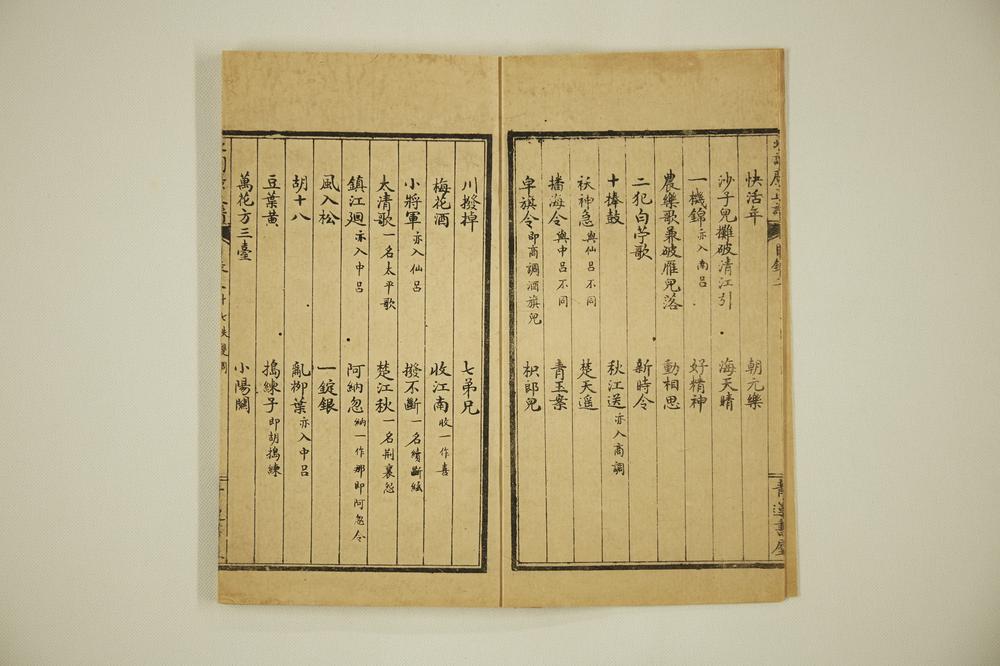 快活年 朝元樂
沙子兒攤破清江引 海天晴
一機錦亦入南呂 好精神
農樂歌兼破雁兒落 動相思
二犯白苧歌 新時令
十棒鼓 秋江送亦入商調
袄神急與仙呂不同 楚天遥
播海令與中呂不同 青玉案
皁旗令即商調酒旗兒 枳郎兒
川撥掉 七弟兄
梅花酒 收江南收一作喜
小將軍亦入仙呂 撥不斷一名續斷絃
太清歌一名太平歌 楚江秋一名荆襄怨
鎮江廻亦入中呂 阿納忽納一作那即阿忽令
風入松 一錠銀
胡十八 亂柳葉亦入中呂
豆葉黄 搗練子即胡搗練
萬花方三臺 小陽關